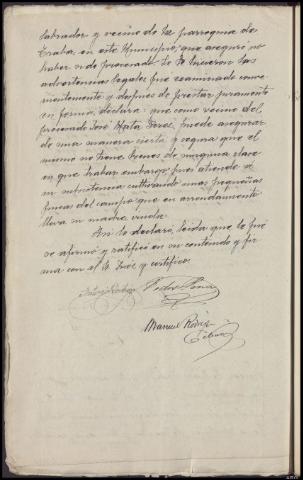 labrador y vecino de la parroquia de
Traba en este Municipio, que aseguró no
haber sido procesado. Se le hicieron las
advertencias legales, fue examinado conve-
nientemente y después de prestar juramento
en forma, declara: que como vecino del
procesado José Mata Pérez, puede asegurar
de una manera cierta y segura que el
mismo no tiene bienes de ninguna clase
en que trabar embargo, pues atiende a
su subsistencia cultivando unas pequeñas
fincas del campo que en arrendamiento
lleva su madre viuda.
Así lo declaró, leída que le fué
se afirmó y ratificó en su contenido y fir-
ma con el Sr. Juez y certifico.
Pedro
Manuel